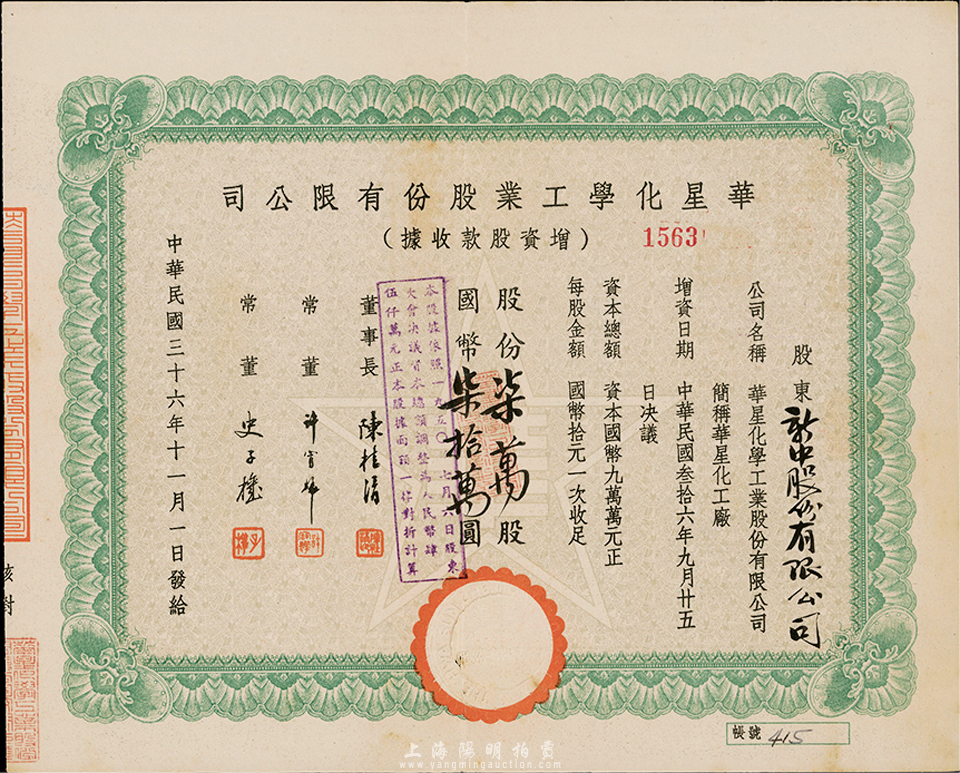 華星化學工業股份有限公司
（增資股款收據）
1563
股東 新中股份有限公司
公司名稱 華星化學工業股份有限公司
簡稱華星化工廠
增資日期 中華民國叁拾六年九月廿五
日決議
資本總額 資本國幣九萬萬元正
每股金額 國幣拾元一次收足
股份柒萬股
國幣柒拾萬圓
本股據依照一九五〇年七月六日股東
大會決議資本總額調整為人民幣肆
伍仟萬元正本股據面額一律對折計算
董事長 陳桂清
常董
常董
中華民國三十六年十一月一日發給
核對
帳號 415
上海陽明拍賣
www.yangmingauction.com